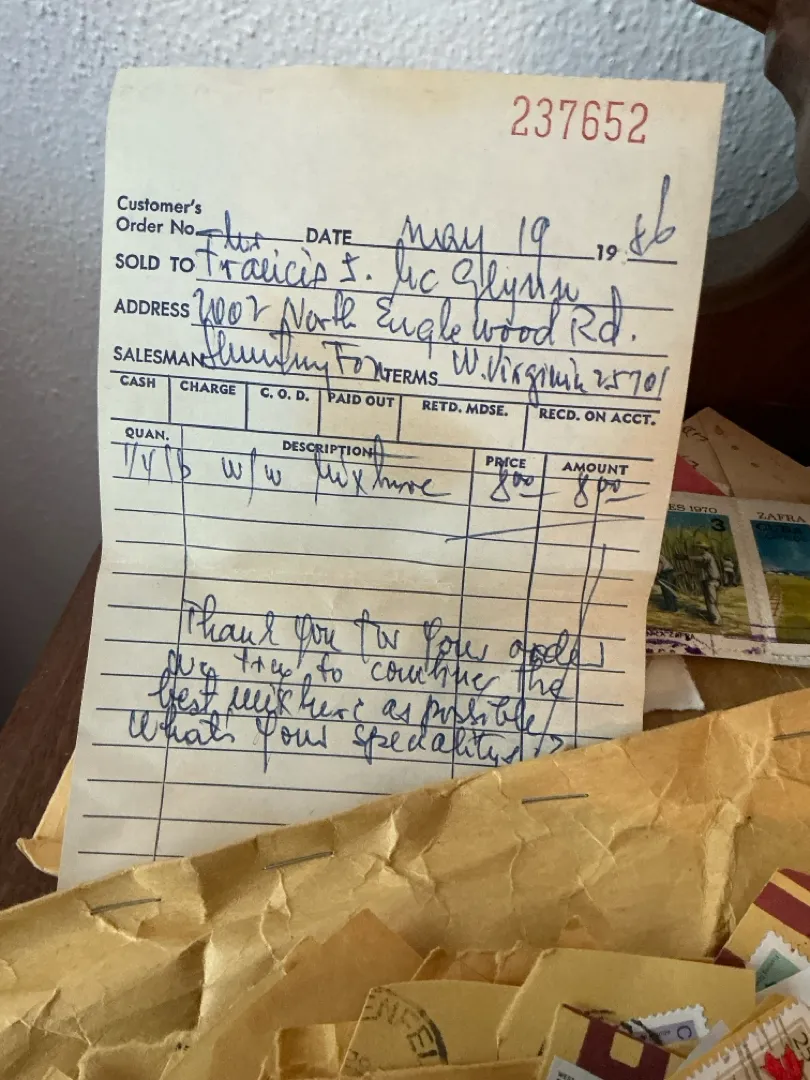 237652
Customer's
Order No. DATE May 19 19 86
SOLD TO Francis J. McGlynn
ADDRESS 2002 North Englewood Rd.
SALESMAN TERMS W. Virginia 25701
CASH CHARGE C. O. D. PAID OUT RETD. MDSE. RECD. ON ACCT.
QUAN. DESCRIPTION PRICE AMOUNT
1/4 lb w/w Mixture 8.00 8.00
Thank you for your order
we try to combine the
best mixture as possible
What's your speciality's ?
ES 1970
3
ZAFRA
ENFEL
C